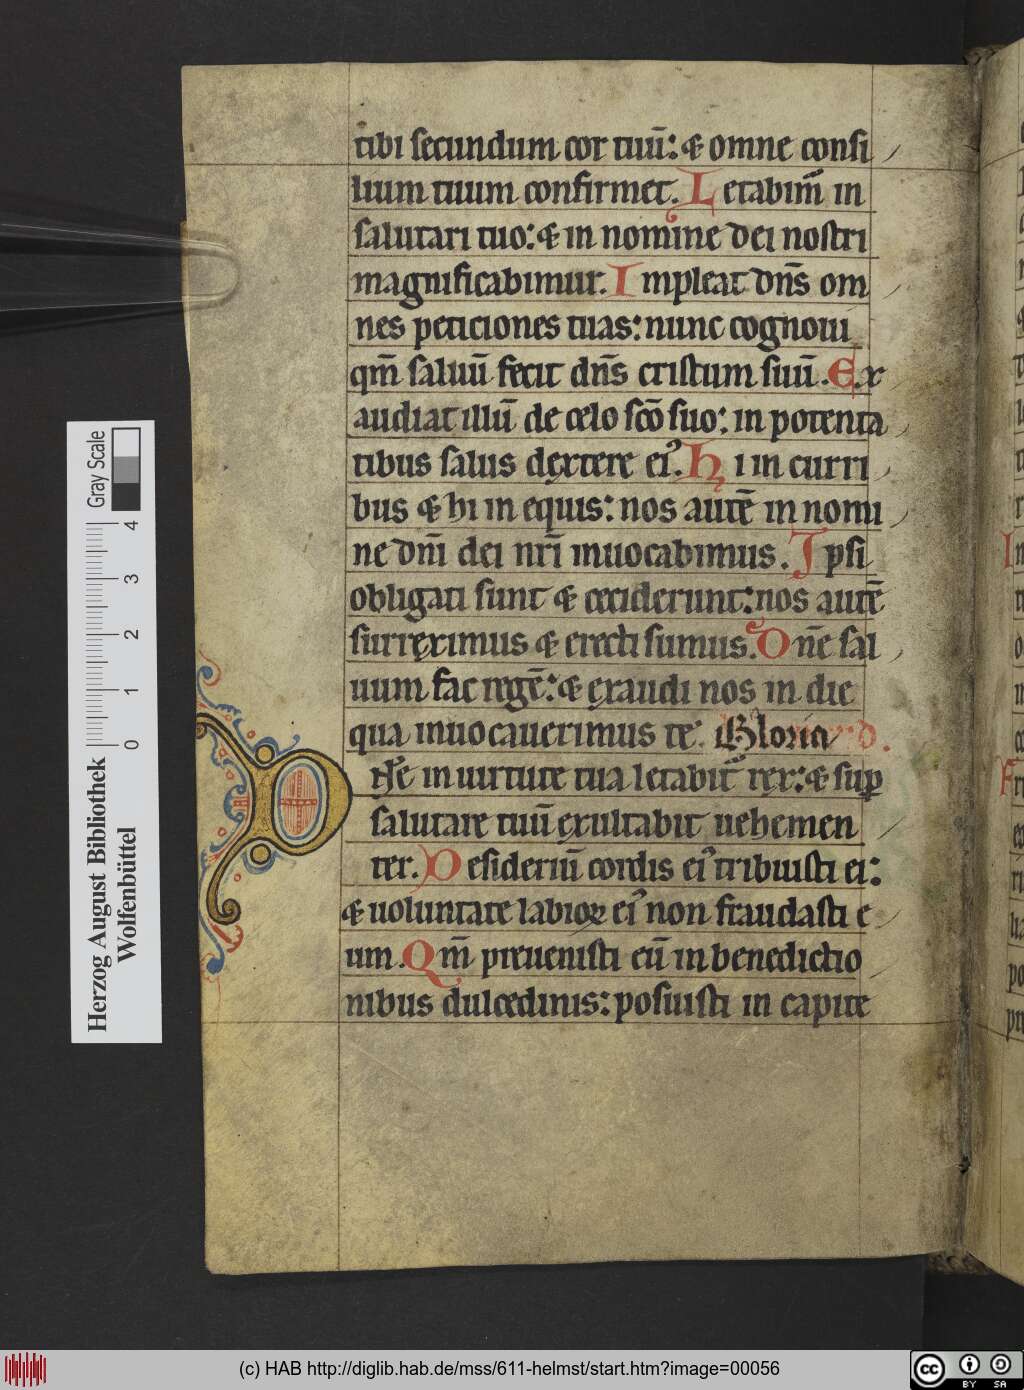 tibi secundum cor tuū: & omne consi
lium tuum confirmet. Letabim̄ in
salutari tuo: & in nomine dei nostri
magnificabimur. Impleat dn̄s om
nes peticiones tuas: nunc cognoui
qm̄ saluū fecit dn̄s cristum suū. Ex
audiat illū de celo sc̄o suo: in potenta
tibus salus dextere ei᾿. Hi in curri
bus & hi in equis: nos autē in nomi
ne dn̄i dei nr̄i inuocabimus. Ipsi
obligati sunt & ceciderunt: nos autē
surreximus & erecti sumus. Dn̄e sal
uum fac regē: & exaudi nos in die
qua inuocauerimus te. Gloria
Dn̄e in uirtute tua letabit᾿ rex: & sup̄
salutare tuū exultabit uehemen
ter. Desideriū cordis ei᾿ tribuisti ei:
& uoluntate labioꝝ ei᾿ non fraudasti e
um. Qm̄ preuenisti eū in benedictio
nibus dulcedinis: posuisti in capite
Gray Scale
0 1 2 3 4
Herzog August Bibliothek
Wolfenbüttel
(c) HAB http://diglib.hab.de/mss/611-helmst/start.htm?image=00056
cc BY SA